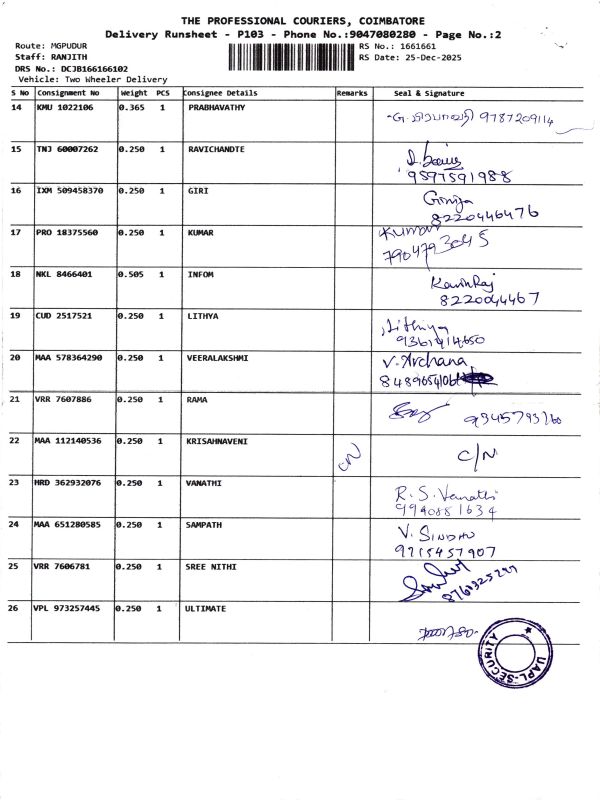 THE PROFESSIONAL COURIERS, COIMBATORE
Delivery Runsheet - P103 - Phone No.:9047080280 - Page No.:2
Route: MGPUDUR
Staff: RANJITH
DRS No.: DCJB166166102
Vehicle: Two Wheeler Delivery
RS No.: 1661661
RS Date: 25-Dec-2025
S No Consignment No Weight PCS Consignee Details Remarks Seal & Signature
14 KMU 1022106 0.365 1 PRABHAVATHY 9787209114
15 TNJ 60007262 0.250 1 RAVICHANDTE
9597591988
16 IXM 509458370 0.250 1 GIRI Girija
8220446476
17 PRO 18375560 0.250 1 KUMAR Kumar
7904793045
18 NKL 8466401 0.505 1 INFOM KavinRaj
8220044467
19 CUD 2517521 0.250 1 LITHYA Lithiya
9361414650
20 MAA 578364290 0.250 1 VEERALAKSHMI V. Archana
21 VRR 7607886 0.250 1 RAMA
22 MAA 112140536 0.250 1 KRISAHNAVENI C/N C/N
23 HRD 362932076 0.250 1 VANATHI R.S. Vanathi
9940881634
24 MAA 651280585 0.250 1 SAMPATH V. SINDHU
9715457907
25 VRR 7606781 0.250 1 SREE NITHI
26 VPL 973257445 0.250 1 ULTIMATE
UAPL-SECURITY